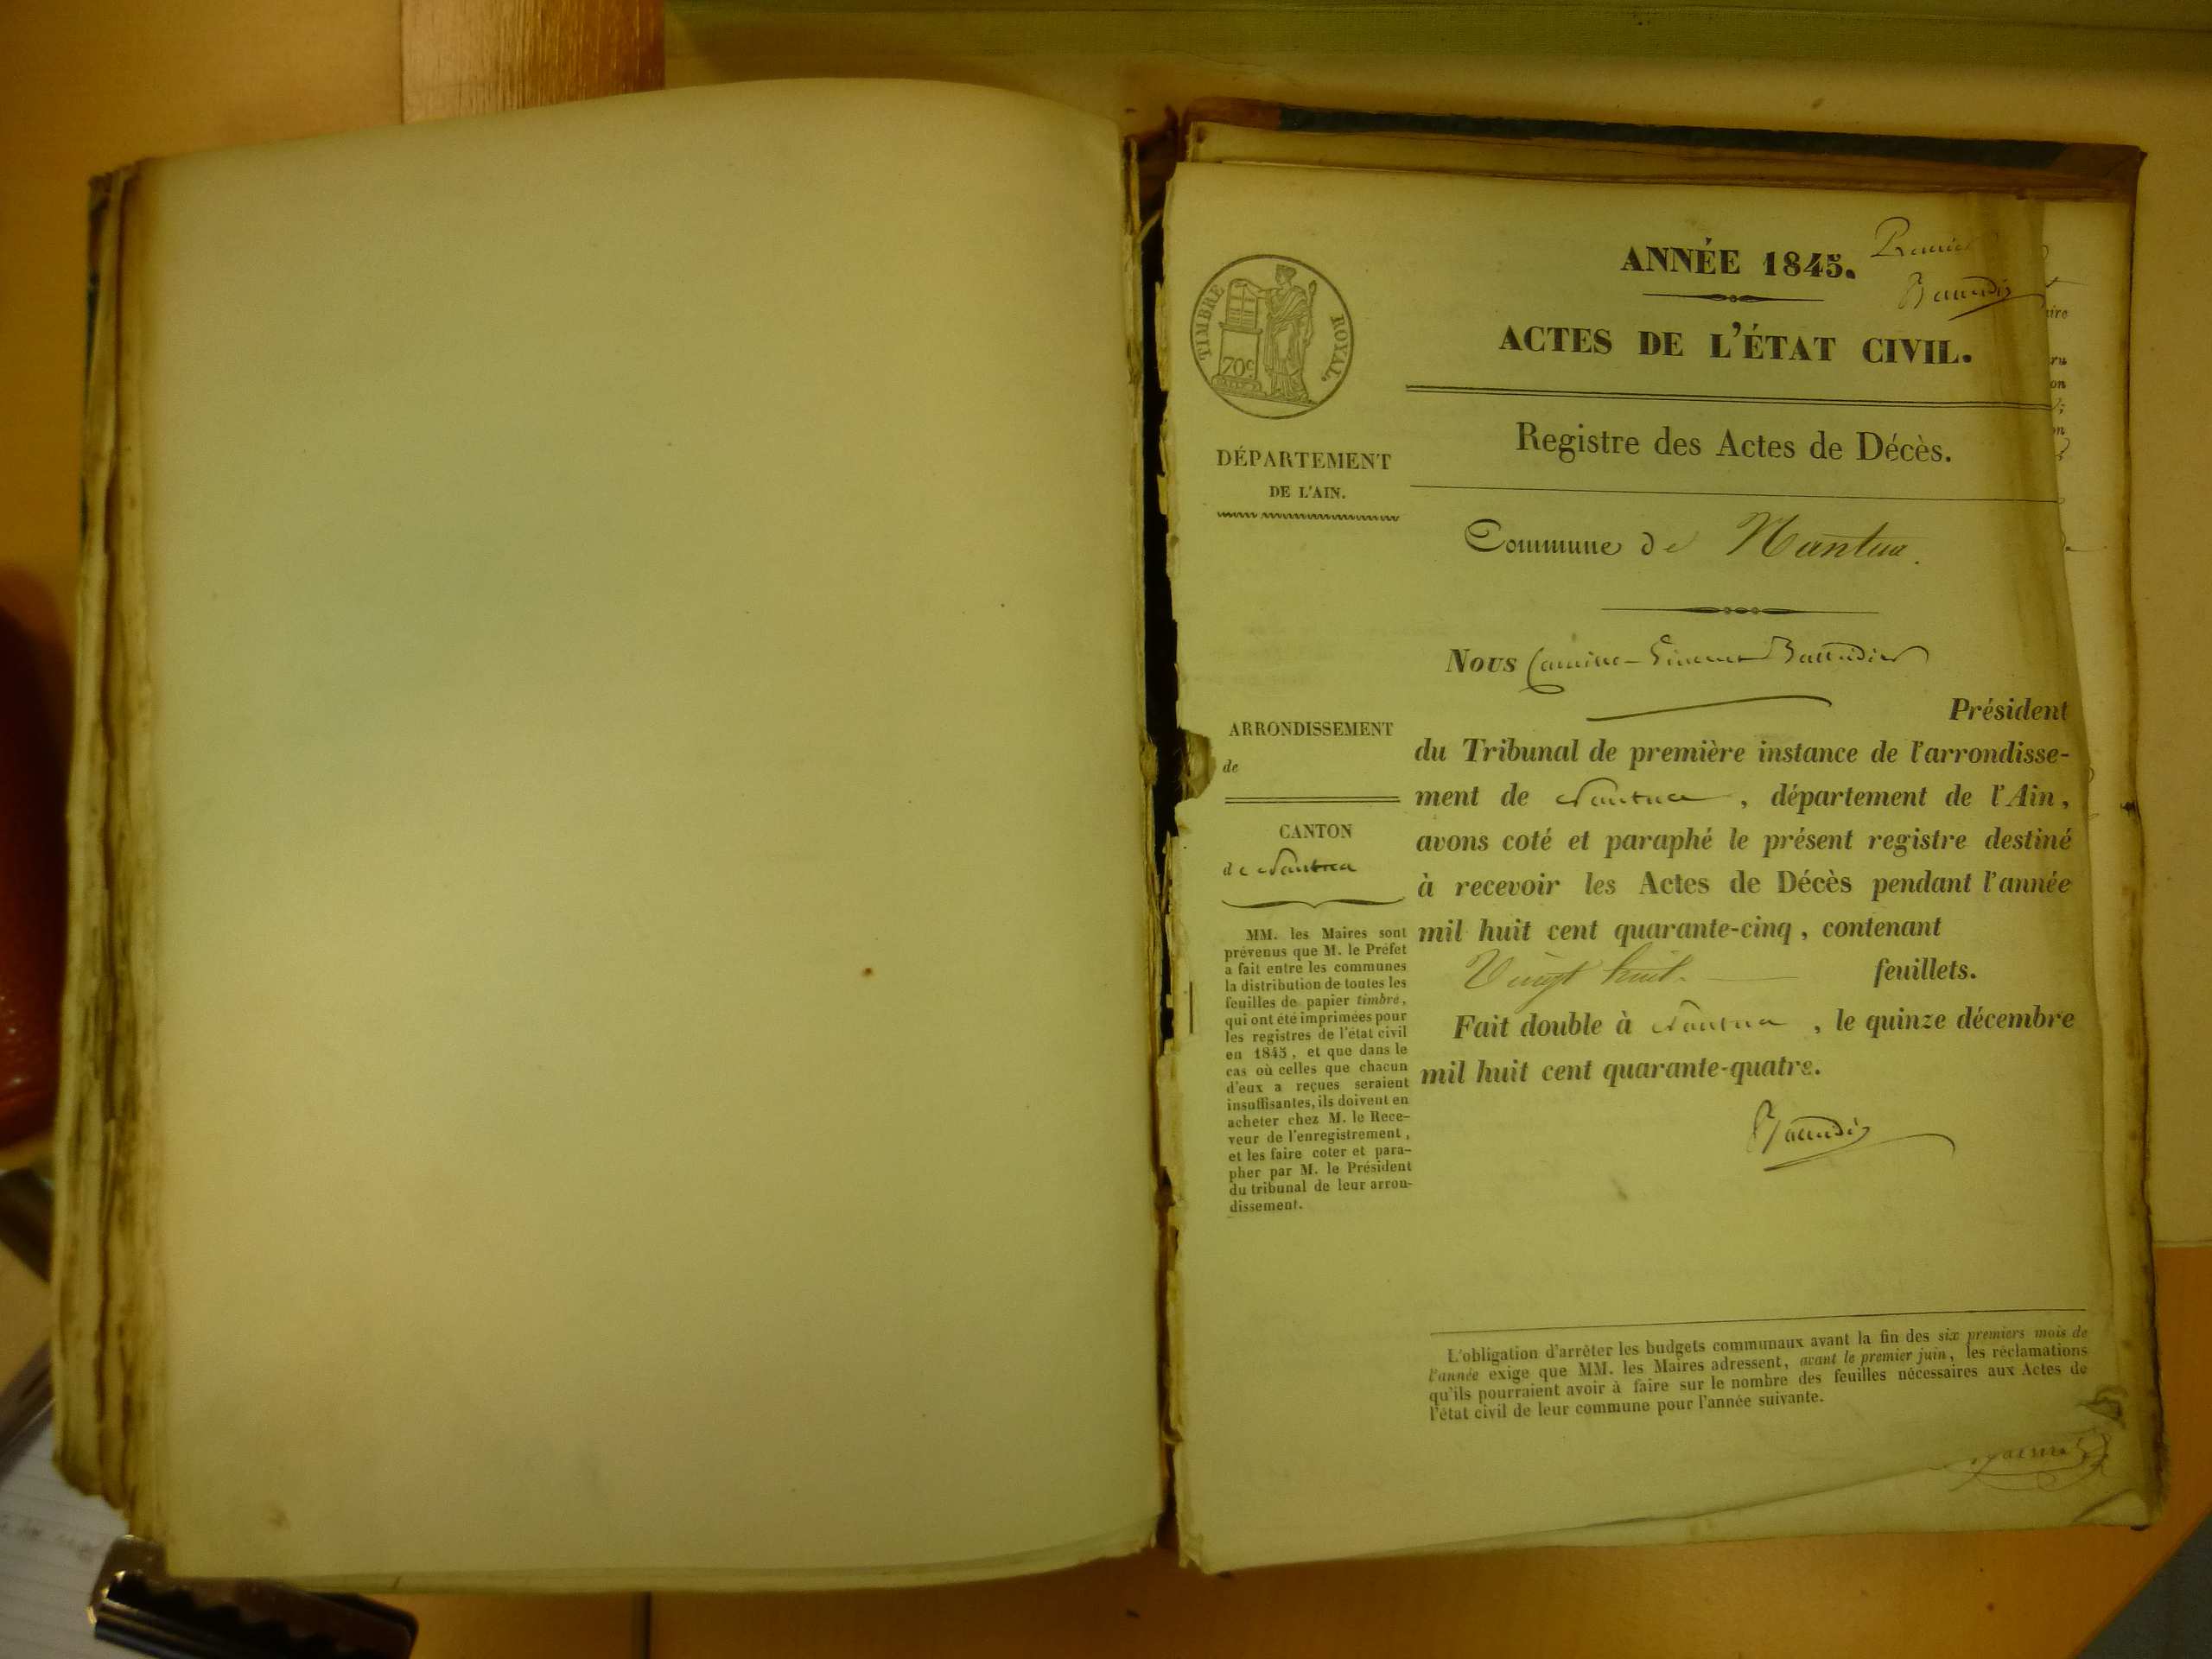 ANNÉE 1845.
TIMBRE ROYAL.
70c
ACTES DE L'ÉTAT CIVIL.
Registre des Actes de Décès.
DÉPARTEMENT
DE L'AIN.
Commune de Nantua.
Nous
Président
du Tribunal de première instance de l'arrondisse-
ment de Nantua, département de l'Ain,
avons coté et paraphé le présent registre destiné
à recevoir les Actes de Décès pendant l'année
mil huit cent quarante-cinq, contenant
Vingt huit feuillets.
Fait double à Nantua, le quinze décembre
mil huit cent quarante-quatre.
ARRONDISSEMENT
de
CANTON
de Nantua
MM. les Maires sont
prévenus que M. le Préfet
a fait entre les communes
la distribution de toutes les
feuilles de papier timbré,
qui ont été imprimées pour
les registres de l'état civil
en 1845, et que dans le
cas où celles que chacun
d'eux a reçues seraient
insuffisantes, ils doivent en
acheter chez M. le Rece-
veur de l'enregistrement,
et les faire coter et para-
pher par M. le Président
du tribunal de leur arron-
dissement.
L'obligation d'arrêter les budgets communaux avant la fin des six premiers mois de
l'année exige que MM. les Maires adressent, avant le premier juin, les réclamations
qu'ils pourraient avoir à faire sur le nombre des feuilles nécessaires aux Actes de
l'état civil de leur commune pour l'année suivante.